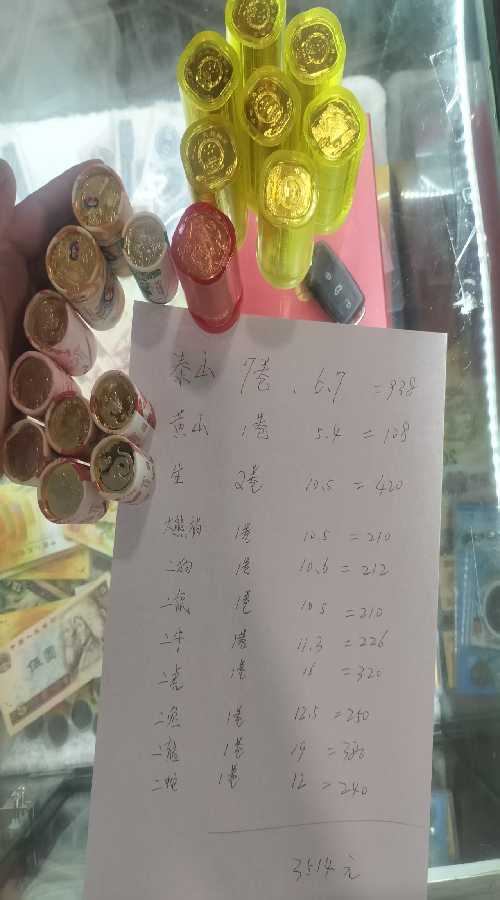 泰山 7卷、6.7 =938
黄山 1卷 5.4 =108
2卷 10.5 =420
熊猫 1卷 10.5 =210
二狗 1卷 10.6 =212
二鼠 1卷 10.5 =210
二牛 1卷 11.3 =226
二虎 1卷 16 =320
二兔 1卷 12.5 =250
1卷 19 =380
二蛇 1卷 12 =240
3514元
伍圆